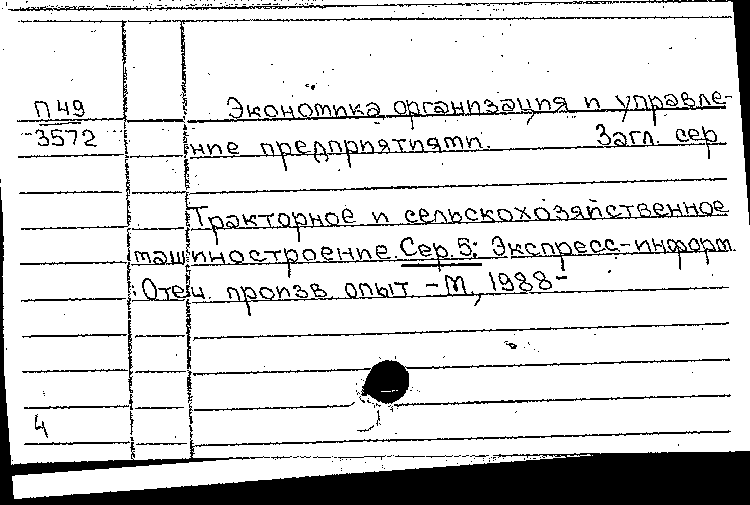 П49
3572
Экономика организация и управле-
ние предприятиями. Загл. сер
Тракторное и сельскохозяйственное
машиностроение. Сер. 5: Экспресс-информ.
: Отеч. произв. опыт - М., 1988-
4